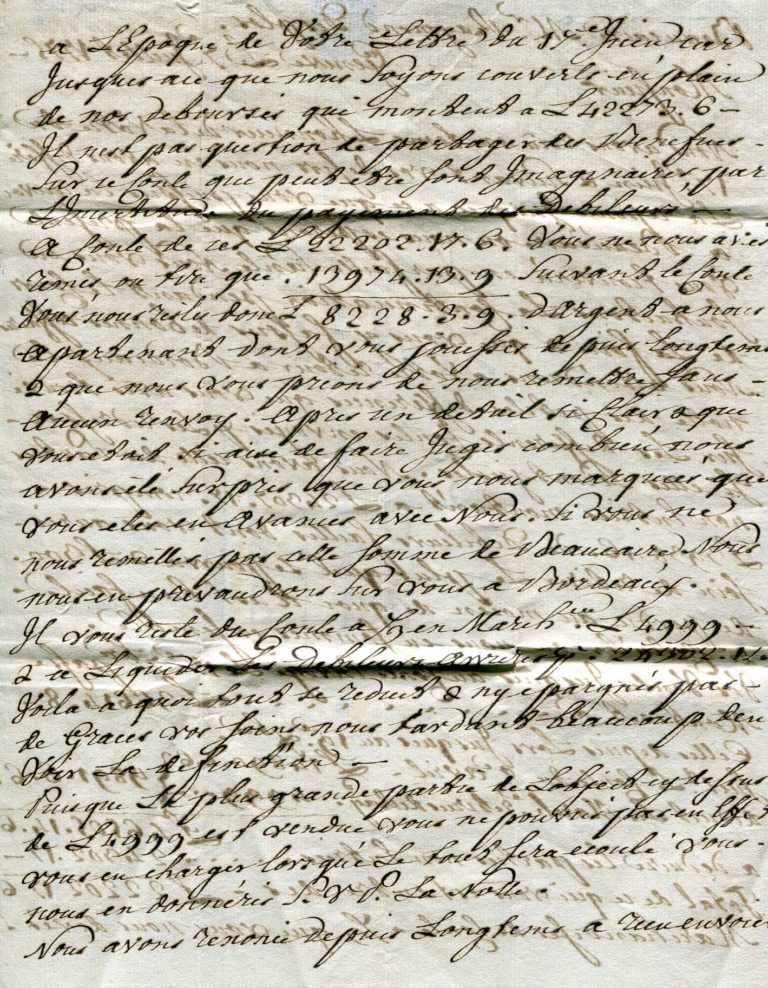 a L'Epoque de Votre Lettre du 17e Juin car
Jusques a ce que nous Soyons couverts en plain
de nos deboursés qui montent a L 42273.6 –
Il n'est pas question de partager des Benefices –
Sur ce Conte qui peut etre sont Imaginaires, par
L'Incertitude du payement des Debiteurs,
a Conte de ces L 22202.17.6. Vous ne nous aviés
remis ou tiré que . 13974.13.9 Suivant le Conte
Vous nous restés donc L 8228.3.9. d'argent a nous
apartenant dont vous jouissés depuis Longtems
& que nous vous prions de nous remettre Sans –
aucun renvoy. Apres un detail si Clair & que
vous etoit si aisé de faire Jugés combien nous
avons été surpris que vous nous marquiés que
vous etes en avances avec Nous. Si vous ne
nous remettés pas cette somme de Beaucaire Nous
nous en prevaudrons sur vous a Bordeaux.
Il vous reste du Conte a en March. L 4999 –
& a Liquider Les Debiteurs
Voila a quoi tout se reduit & n'y epargnés pas –
de Graces vos soins nous tardant beaucoup d'en
Voir La definition –
Puisque La plus grande partie de L'object cy dessus
de L 4999 est vendue vous ne pouvés pas en Effet
vous en charger lorsque Le tout sera ecoulé vous –
nous en donnerés S. V. P. La Notte.
Nous avons renoncé depuis Longtems a